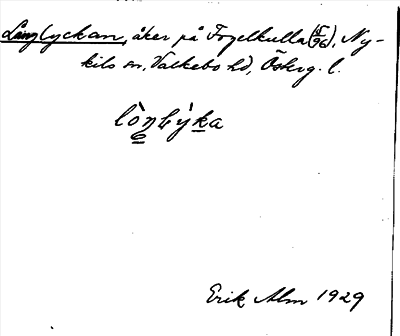 Långlyckan, åker på Fogelkulla (5/96), Ny-
kils sn, Valkebo hd, Österg. l.
lòŋlýka
Erik Alm 1929